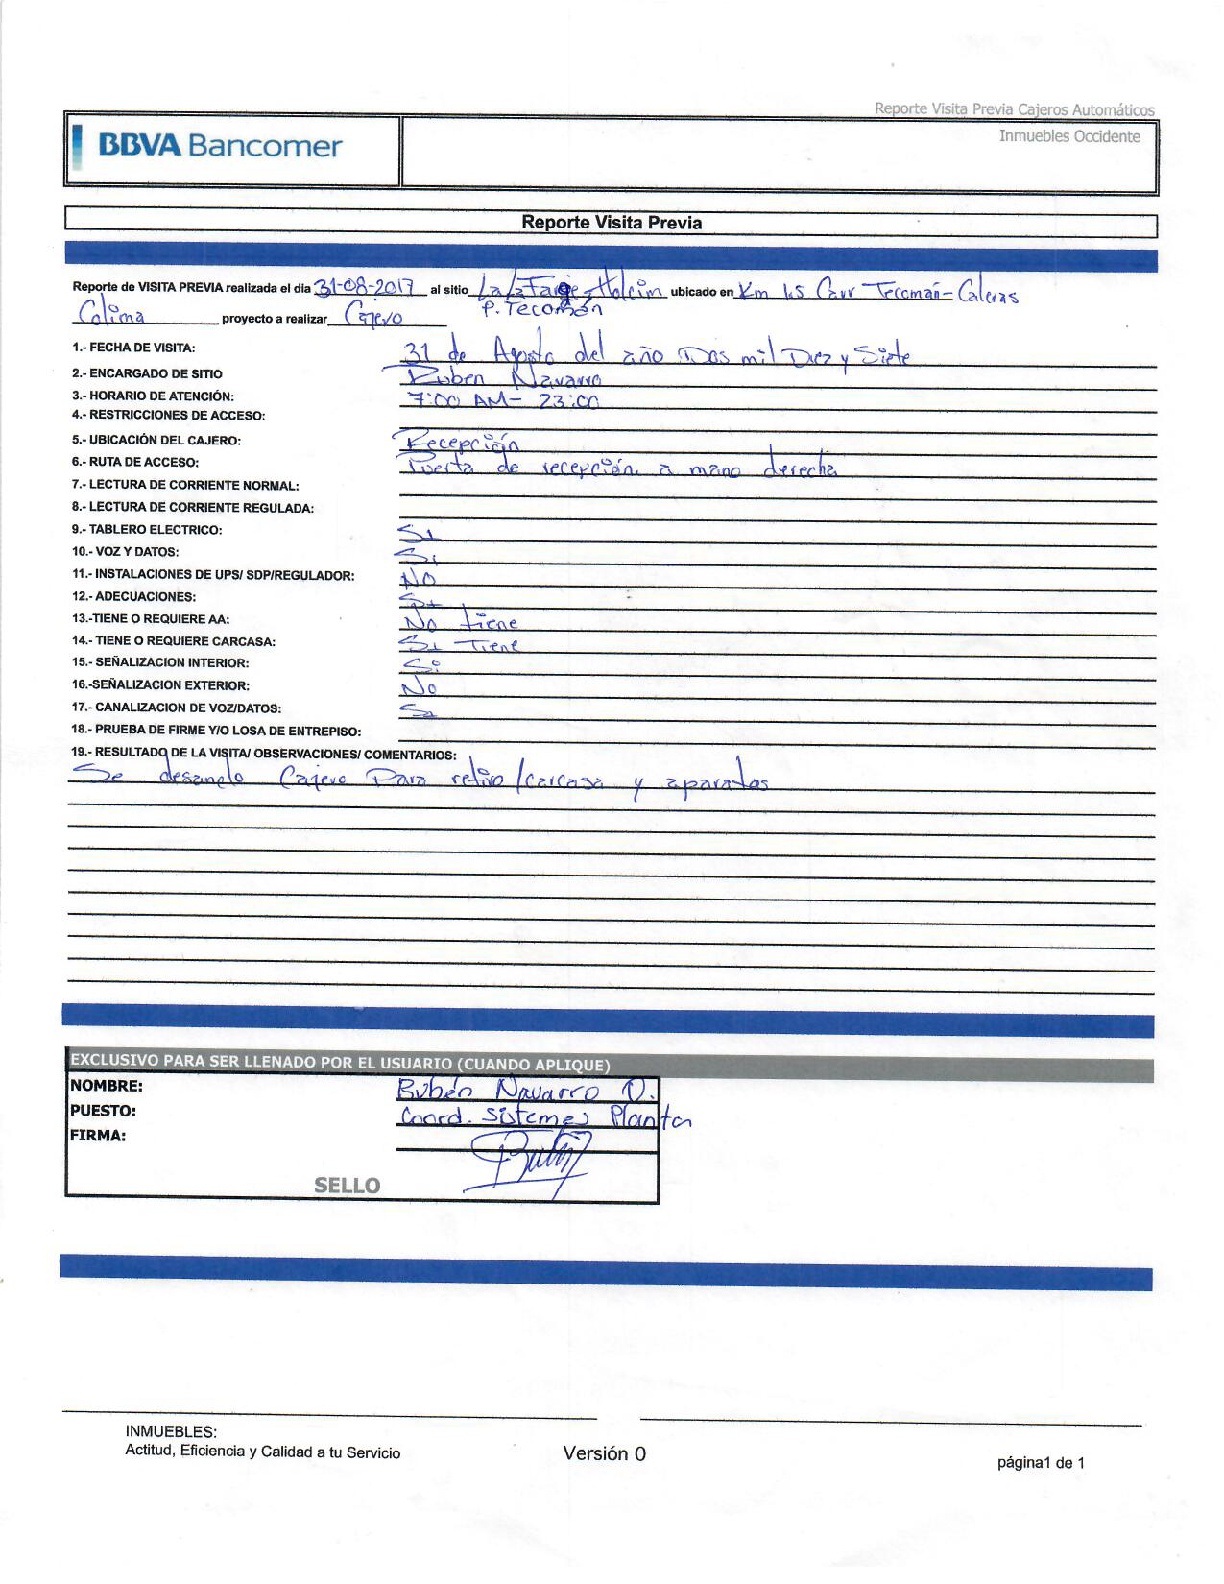 Reporte Visita Previa Cajeros Automáticos
BBVA Bancomer
Inmuebles Occidente
Reporte Visita Previa
Reporte de VISITA PREVIA realizada el día 31-08-2017 al sitio La Farge Holcim ubicado en Km 1.5 Carr Tecomán-Caleras
P. Tecomán
Colima proyecto a realizar Cajero
1.- FECHA DE VISITA: 31 de Agosto del año Dos mil Diez y Siete
2.- ENCARGADO DE SITIO Ruben Navarro
3.- HORARIO DE ATENCIÓN: 7:00 AM- 23:00
4.- RESTRICCIONES DE ACCESO:
5.- UBICACIÓN DEL CAJERO: Recepción
6.- RUTA DE ACCESO: Puerta de recepción a mano derecha
7.- LECTURA DE CORRIENTE NORMAL:
8.- LECTURA DE CORRIENTE REGULADA:
9.- TABLERO ELECTRICO: Si
10.- VOZ Y DATOS: Si
11.- INSTALACIONES DE UPS/ SDP/REGULADOR: NO
12.- ADECUACIONES: Si
13.-TIENE O REQUIERE AA: No tiene
14.- TIENE O REQUIERE CARCASA: Si Tiene
15.- SEÑALIZACION INTERIOR: Si
16.-SEÑALIZACION EXTERIOR: No
17.- CANALIZACION DE VOZ/DATOS: Si
18.- PRUEBA DE FIRME Y/O LOSA DE ENTREPISO:
19.- RESULTADO DE LA VISITA/ OBSERVACIONES/ COMENTARIOS:
Se desanclo Cajero Para retiro / carcasa y aparatos
EXCLUSIVO PARA SER LLENADO POR EL USUARIO (CUANDO APLIQUE)
NOMBRE: Rubén Navarro O.
PUESTO: Coord. Sistemas Planta
FIRMA:
SELLO
INMUEBLES:
Actitud, Eficiencia y Calidad a tu Servicio
Versión 0
página1 de 1